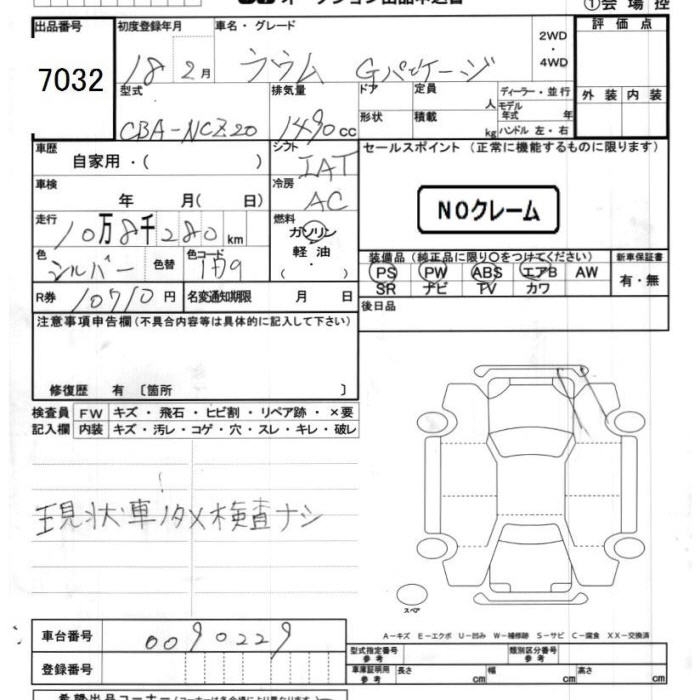 オークション出品申込書
①会場控
出品番号 初度登録年月 車名・グレード 評価点
7032 18 2月 ラウム Gパッケージ 2WD・4WD
型式 排気量 ドア 定員 人 ディーラー・並行 外装 内装
CBA-NCZ20 1490cc 形状 積載 kg モデル年式 年
ハンドル 左・右
車歴 シフト セールスポイント (正常に機能するものに限ります)
自家用・( ) IAT
車検 冷房
年 月( 日) AC NOクレーム
走行 燃料
10万8千280km ガソリン
色 色替 色コード 軽油 装備品(純正品に限り○をつけてください) 新車保証書
シルバー 1F9 ( ・ ) PS PW ABS エアB AW 有・無
SR ナビ TV カワ
R券 10710円 名変通知期限 月 日 後日品
注意事項申告欄(不具合内容等は具体的に記入して下さい)
修復歴 有 〔箇所 〕
検査員 FW キズ・飛石・ヒビ割・リペア跡・×要
記入欄 内装 キズ・汚レ・コゲ・穴・スレ・キレ・破レ
現状車ノタメ検査ナシ
スペア
A-キズ E-エクボ U-凹み W-補修跡 S-サビ C-腐食 XX-交換済
車台番号 0090229
型式指定番号 参考 類別区分番号 参考
登録番号 車庫証明用 参考 長さ cm 幅 cm 高さ cm
希望出品コーナー